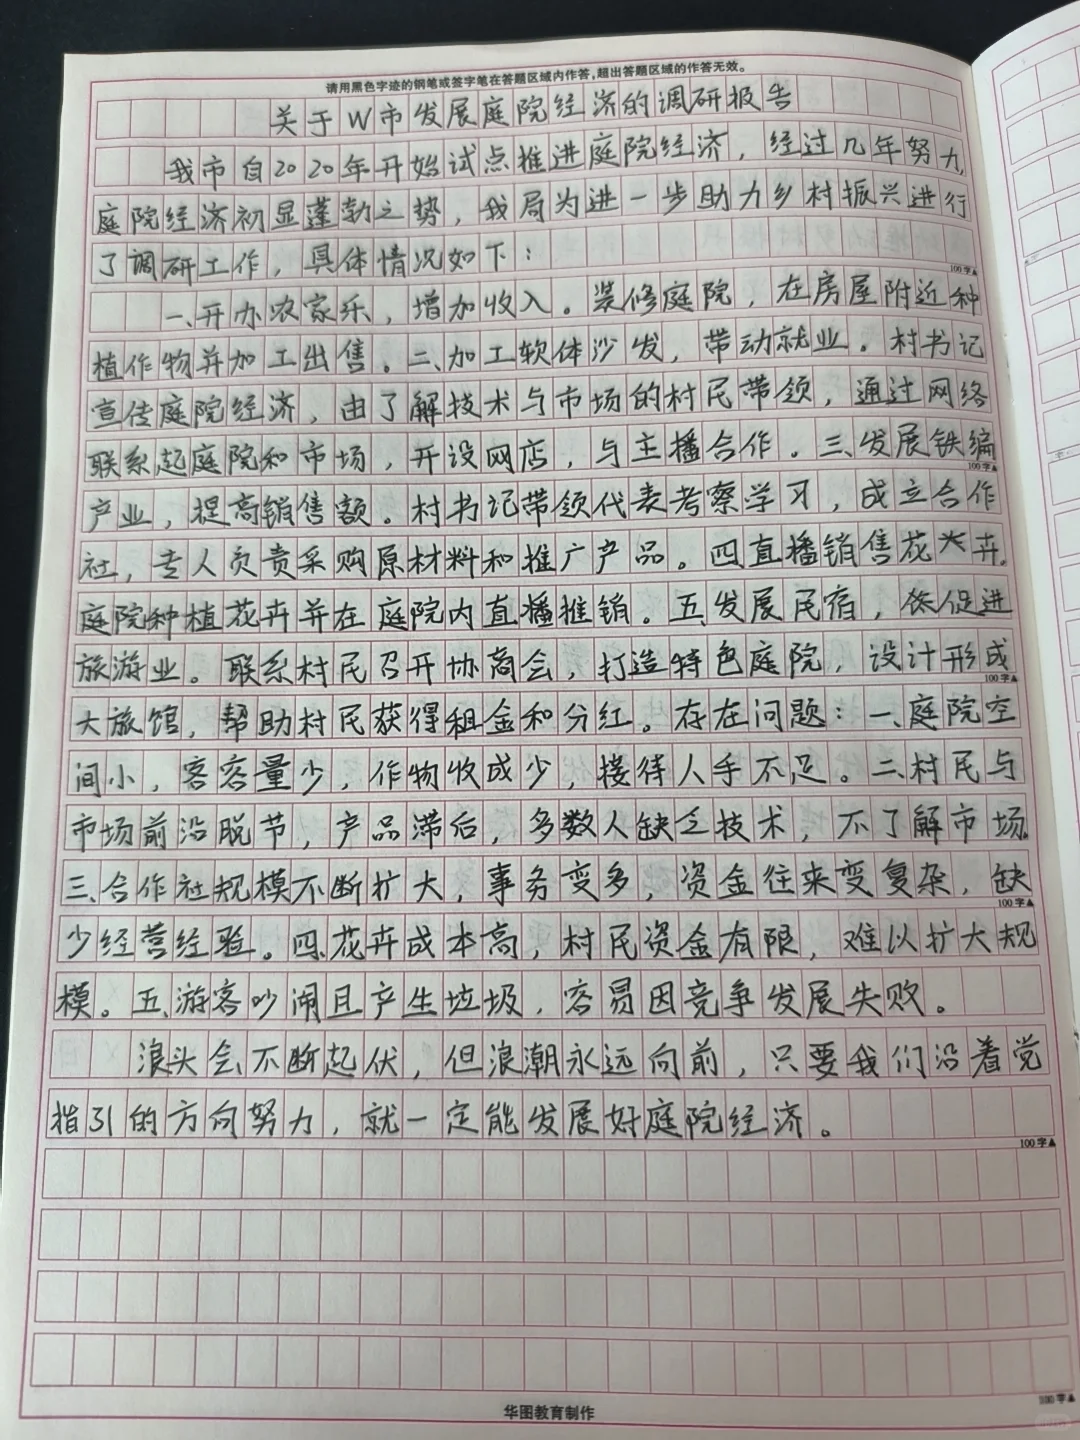 请用黑色字迹的钢笔或签字笔在答题区域内作答,超出答题区域的作答无效。
关于W市发展庭院经济的调研报告
我市自2020年开始试点推进庭院经济，经过几年努力,
庭院经济初显蓬勃之势，我局为进一步助力乡村振兴进行
了调研工作，具体情况如下：
100字▲
一、开办农家乐，增加收入。装修庭院，在房屋附近种
植作物并加工出售。二、加工软体沙发，带动就业。村书记
宣传庭院经济，由了解技术与市场的村民带领，通过网络
联系起庭院和市场，开设网店，与主播合作。三、发展铁编
100字▲
产业，提高销售额。村书记带领代表考察学习，成立合作
社，专人负责采购原材料和推广产品。四直播销售花卉。
庭院种植花卉并在庭院内直播推销。五、发展民宿，促进
旅游业。联系村民召开协商会，打造特色庭院，设计形成
100字▲
大旅馆，帮助村民获得租金和分红。存在问题：一、庭院空
间小，客容量少，作物收成少，接待人手不足。二、村民与
市场前沿脱节，产品滞后，多数人缺乏技术，不了解市场.
三、合作社规模不断扩大，事务变多，资金往来变复杂，缺
100字▲
少经营经验。四、花卉成本高，村民资金有限，难以扩大规
模。五、游客吵闹且产生垃圾，容易因竞争发展失败。
浪头会不断起伏，但浪潮永远向前，只要我们沿着党
指引的方向努力，就一定能发展好庭院经济。
100字▲
100字▲
华图教育制作